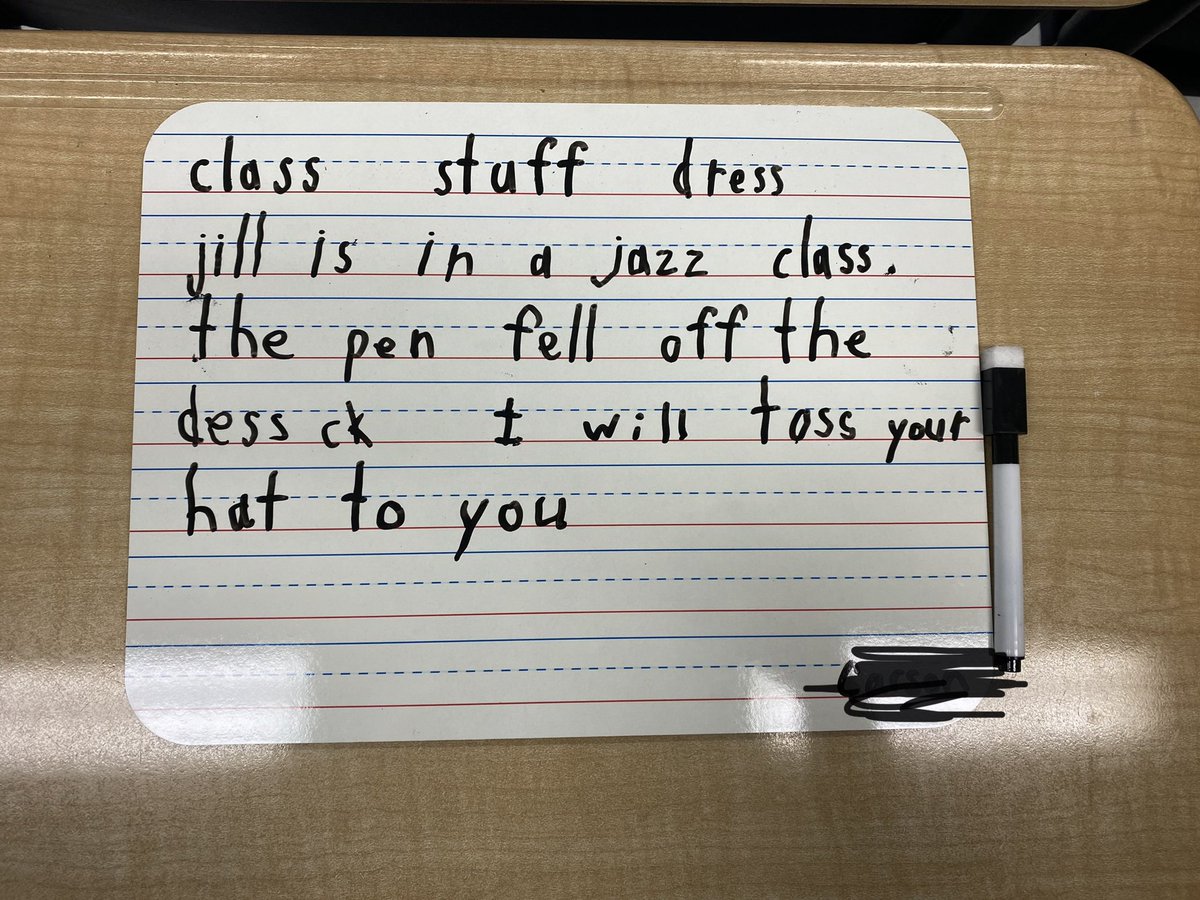 class stuff dress
jill is in a jazz class.
the pen fell off the
dess ck I will toss your
hat to you